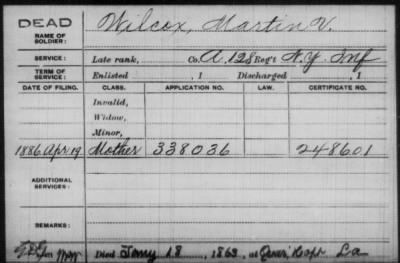 DEAD
NAME OF SOLDIER: Wilcox, Martin V.
SERVICE: Late rank, Co. A, 128 Reg't N.Y. Inf
TERM OF SERVICE: Enlisted , 1 Discharged , 1
DATE OF FILING. CLASS. APPLICATION NO. LAW. CERTIFICATE NO.
Invalid,
Widow,
Minor,
1886 Apr 19 Mother 338036 248601
ADDITIONAL SERVICES:
REMARKS:
Died Jany 18, 1863, at La